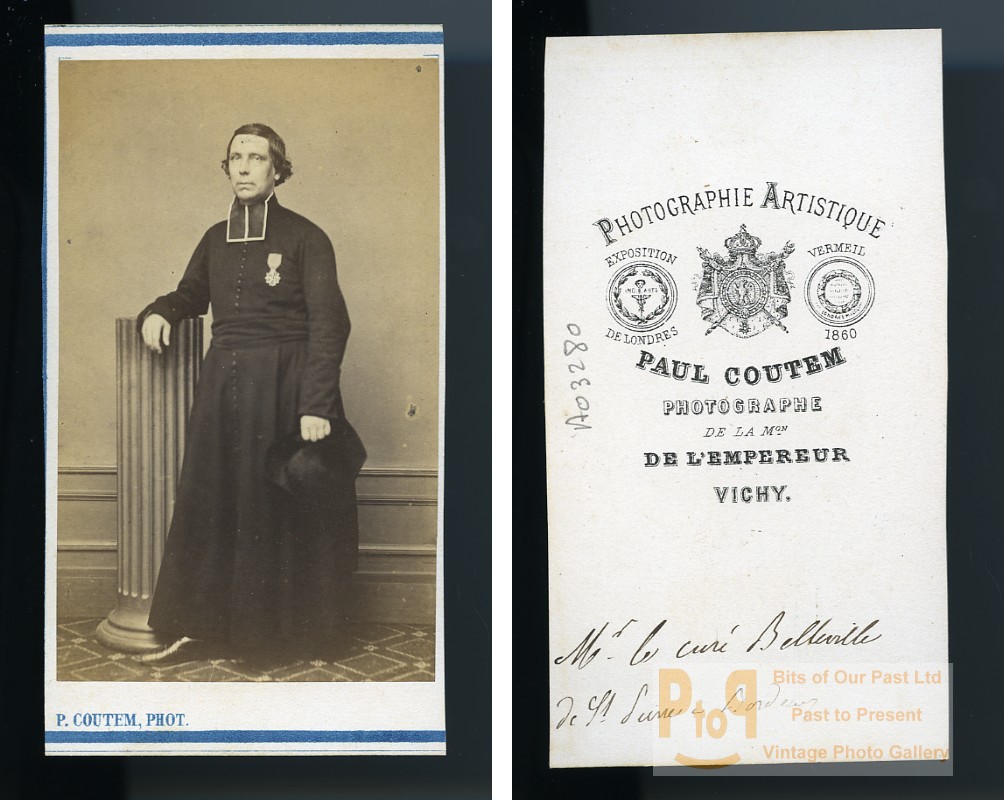 P. COUTEM, PHOT.
PHOTOGRAPHIE ARTISTIQUE
EXPOSITION
DE LONDRES
VERMEIL
1860
PAUL COUTEM
PHOTOGRAPHE
DE LA MON
DE L'EMPEREUR
VICHY.
A03280
Mr. le curé Belleville
de St
PtoP
Bits of Our Past Ltd
Past to Present
Vintage Photo Gallery